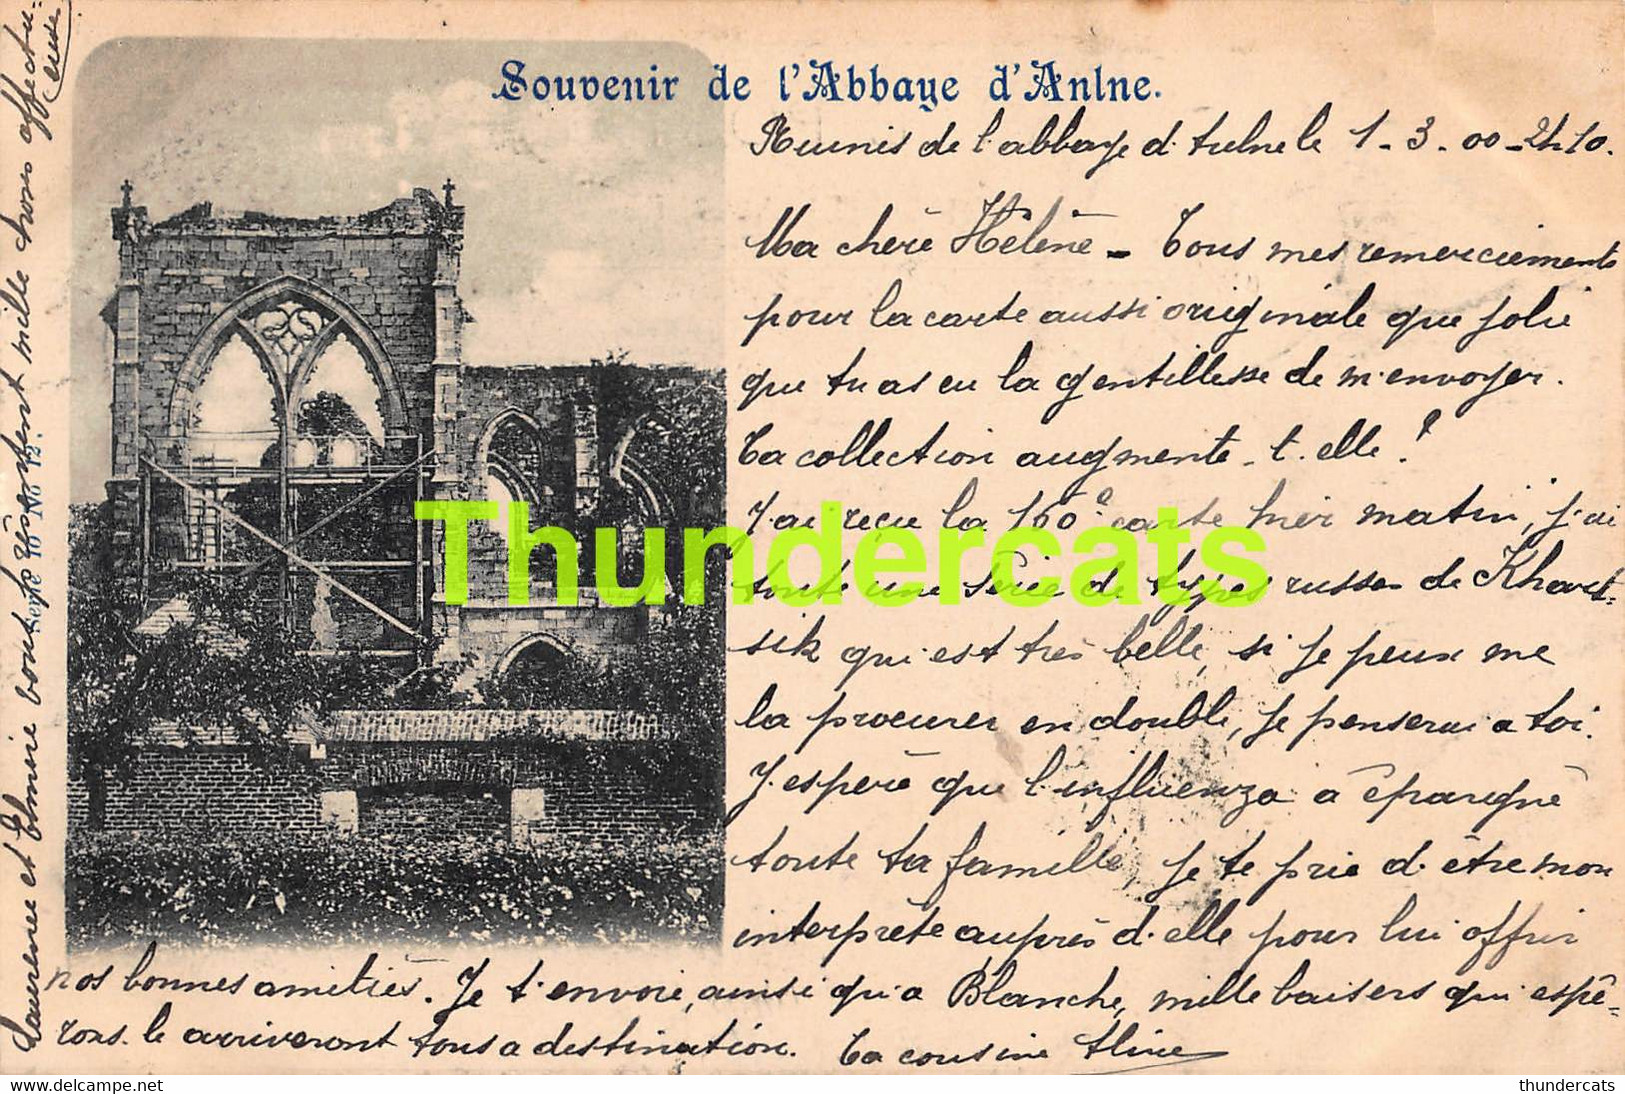 Souvenir de l'Abbaye d'Anlne.
Ruines de l'abbaye d'Aulne le 1-3-00-2h.10.
Ma chère Hélène - Tous mes remerciements
pour la carte aussi originale que jolie
que tu as eu la gentillesse de m'envoyer.
Ta collection augmente-t-elle?
J'ai reçu la 160e carte hier matin, j'ai
toute une série de types russes de Khart-
sik qui est très belle, si je peux me
la procurer en double, je penserai a toi.
J'espère que l'influenza a épargné
toute ta famille, je te prie d'être mon
interprète auprès d'elle pour lui offrir
nos bonnes amitiés. Je t'envoie, ainsi qu'a Blanche, mille baisers qui espé-
rons-le arriveront tous a destination. Ta cousine Aline
Laurence et Elmire vont présentent mille choses affectu-
euses
No 12.
Thundercats
thundercats